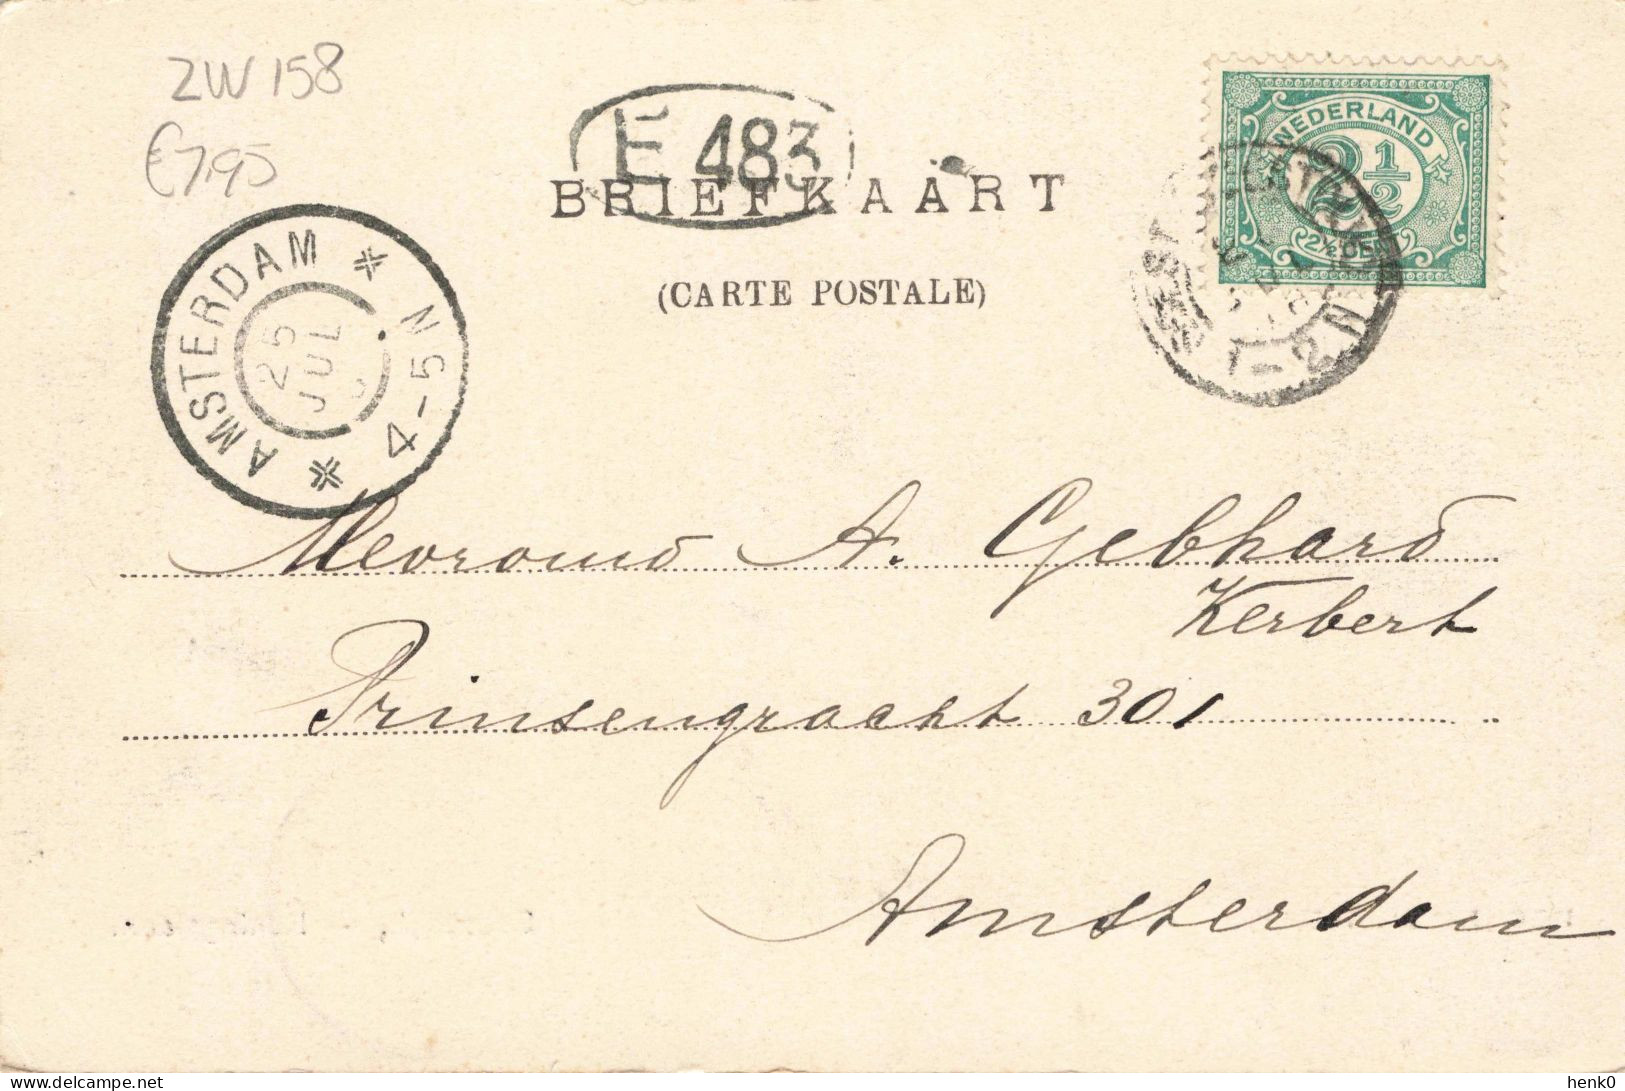 ZW 158
€7,95
E 483
BRIEFKAART
(CARTE POSTALE)
NEDERLAND
2½
2½ CENT
1-2 N
AMSTERDAM
25 JUL
4-5N
Mevrouw A. Gebhard
Kerbert
Prinsengracht 301
Amsterdam
delcampe.net
henk0